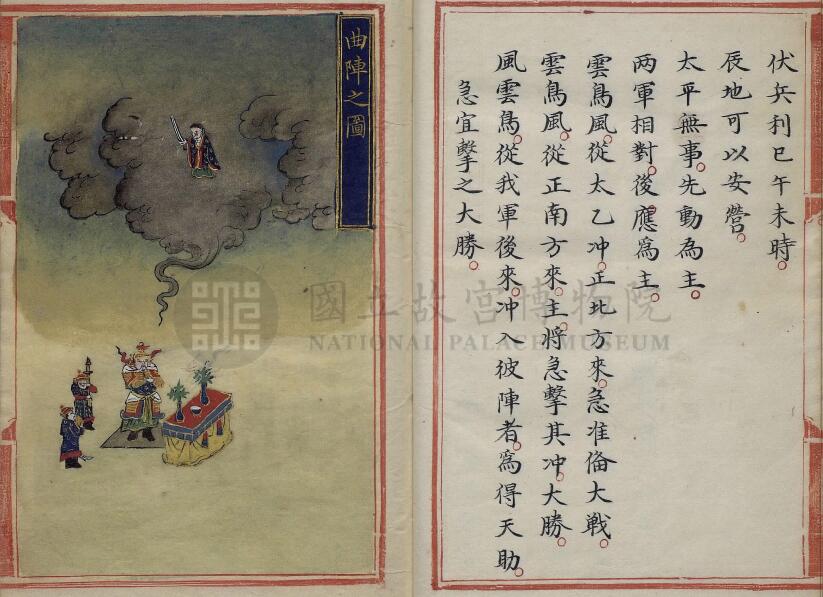 伏兵利巳午未時。
辰地可以安營。
太平無事。先動為主。
两軍相對。後應爲主。
雲鳥風。從太乙冲。正北方來。急准偹大戰。
雲鳥風。從正南方來。主將急擊其冲。大勝。
風雲鳥。從我軍後來。冲入彼陣者。爲得天助。
急宜擊之大勝。
曲陣之圖
國立故宮博物院
NATIONAL PALACE MUSEUM